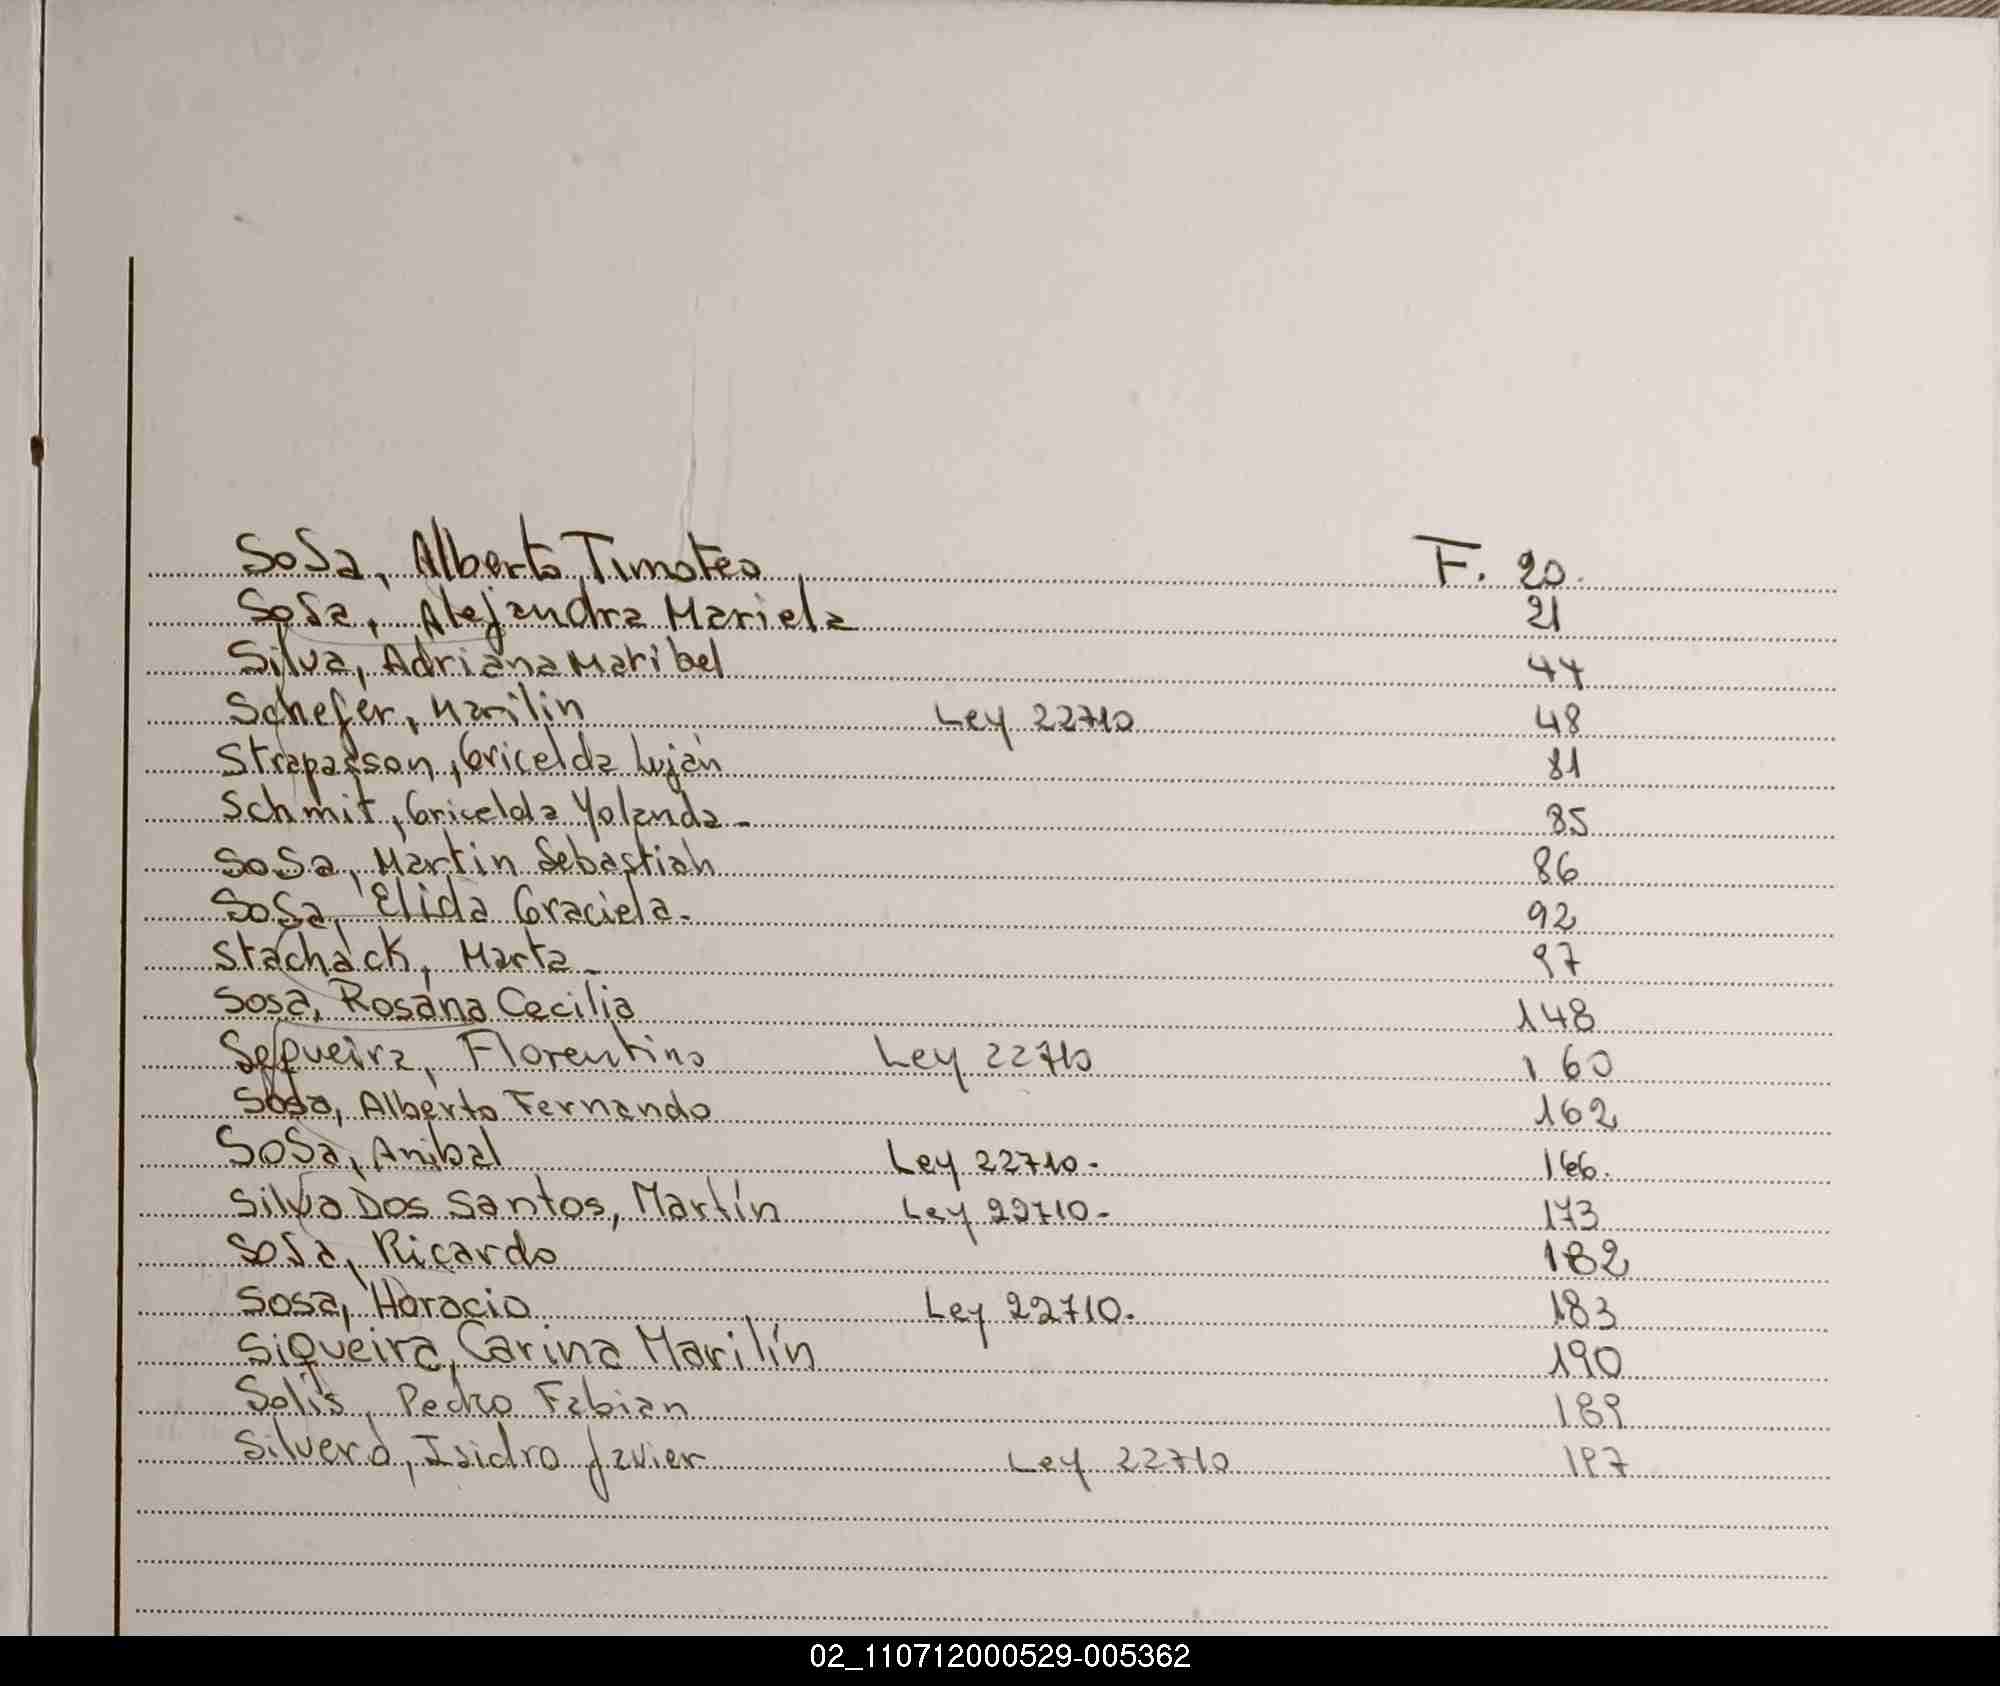 Sosa, Alberto Timoteo F. 20.
Sosa, Alejandra Mariela 21
Silva, Adriana Maribel 44
Schefer, Marilin Ley 22710 48
Strapasson, Gricelda Luján 81
Schmit, Gricelda Yolanda- 85
Sosa, Martin Sebastian 86
Sosa, Elida Graciela- 92
Stachack, Marta- 97
Sosa, Rosana Cecilia 148
Sequeira, Florentino Ley 22710 160
Sosa, Alberto Fernando 162
Sosa, Anibal Ley 22710- 166.
Silva Dos Santos, Martín Ley 22710- 173
Sosa, Ricardo 182
Sosa, Horacio Ley 22710. 183
Siqueira, Carina Marilín 190
Solis, Pedro Fabian 189
Silvero, Isidro Javier Ley 22710 197
02_110712000529-005362